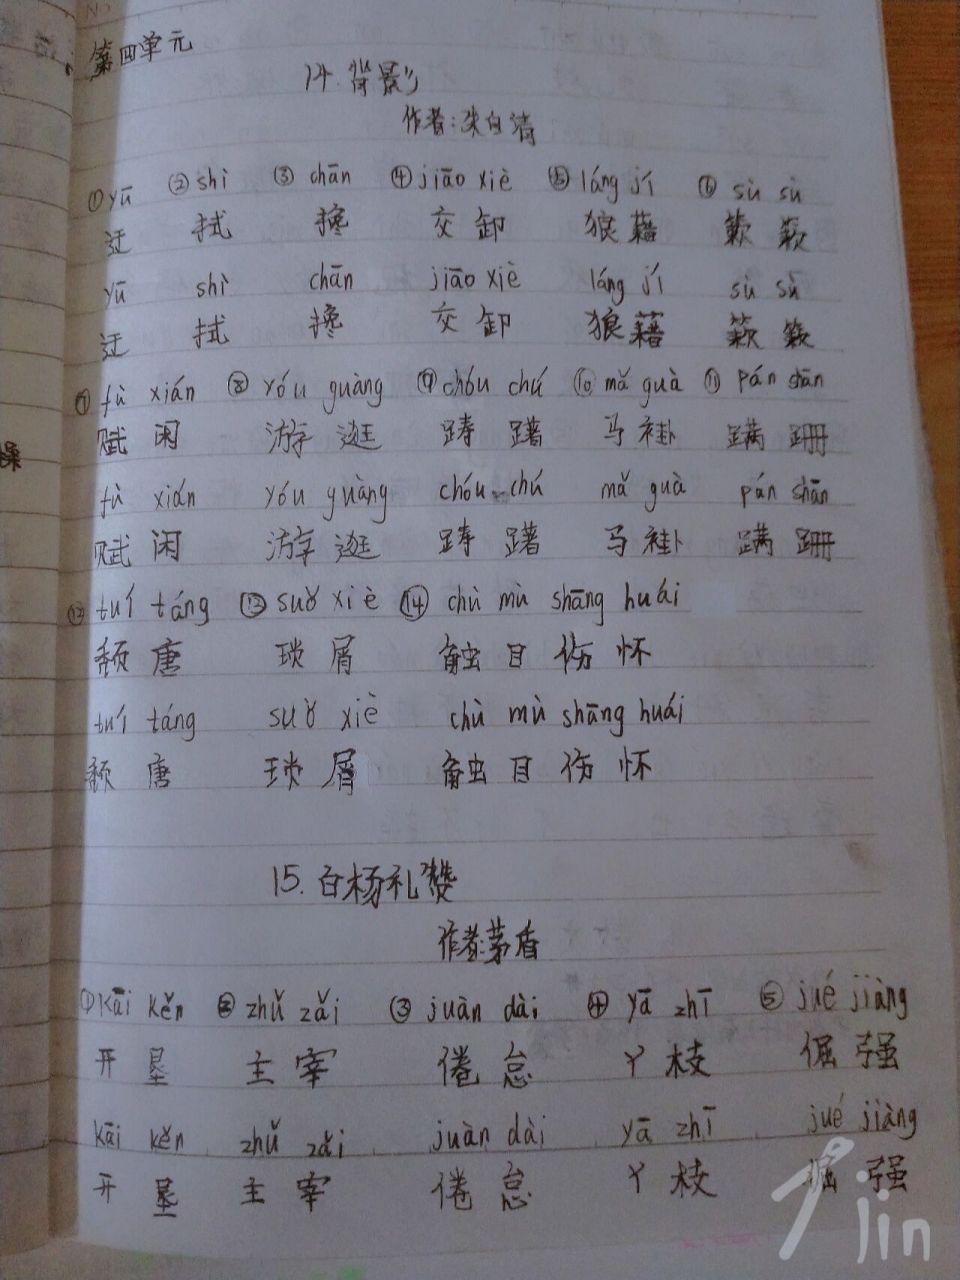 第四单元
14.背影
作者:朱自清
①yū ②shì ③chān ④jiāo xiè ⑤láng jí ⑥sù sù
迂 拭 搀 交卸 狼藉 簌簌
yū shì chān jiāo xiè láng jí sù sù
迂 拭 搀 交卸 狼藉 簌簌
⑦fù xián ⑧yóu guàng ⑨chóu chú ⑩mǎ guà ⑪pán shān
赋闲 游逛 踌躇 马褂 蹒跚
fù xián yóu guàng chóu chú mǎ guà pán shān
赋闲 游逛 踌躇 马褂 蹒跚
⑫tuí táng ⑬suǒ xiè ⑭chù mù shāng huái
颓唐 琐屑 触目伤怀
tuí táng suǒ xiè chù mù shāng huái
颓唐 琐屑 触目伤怀
15.白杨礼赞
作者:茅盾
①kāi kěn ②zhǔ zǎi ③juàn dài ④yā zhī ⑤jué jiàng
开垦 主宰 倦怠 丫枝 倔强
kāi kěn zhǔ zǎi juàn dài yā zhī jué jiàng
开垦 主宰 倦怠 丫枝 倔强
jin